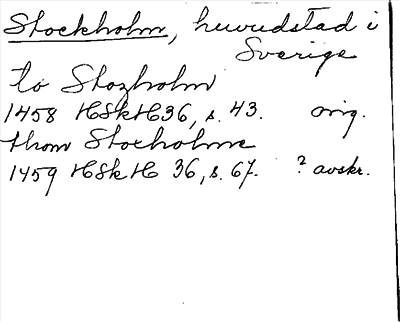 Stockholm, huvudstad i
Sverige
to Stozholm
1458 HSkH 36, s. 43. orig.
thom Stocholme
1459 HSkH 36, s. 67. ? avskr.